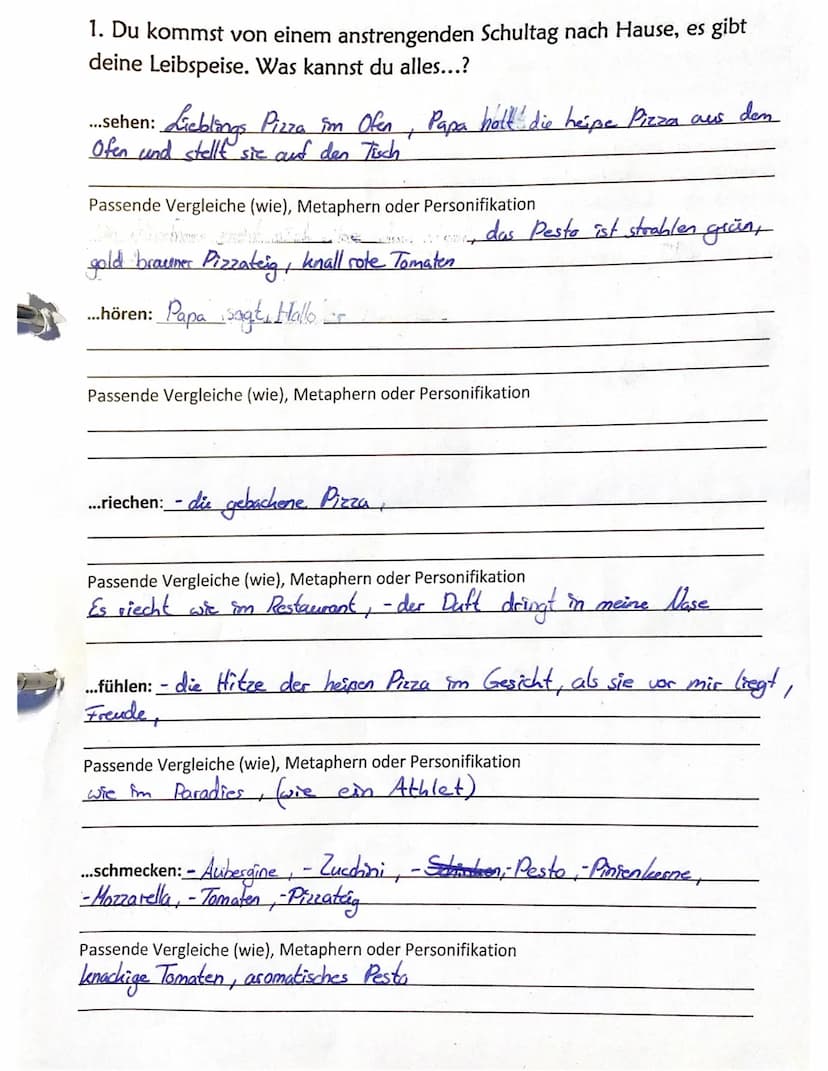 1. Du kommst von einem anstrengenden Schultag nach Hause, es gibt
deine Leibspeise. Was kannst du alles...?
...sehen: Lieblings Pizza im Ofen, Papa holt die heiße Pizza aus dem
Ofen und stellt sie auf den Tisch
Passende Vergleiche (wie), Metaphern oder Personifikation
, das Pesto ist strahlen grün,
gold brauner Pizzateig, knall rote Tomaten
...hören: Papa sagt Hallo
Passende Vergleiche (wie), Metaphern oder Personifikation
...riechen: - die gebackene Pizza,
Passende Vergleiche (wie), Metaphern oder Personifikation
Es riecht wie im Restaurant, - der Duft dringt in meine Nase
...fühlen: - die Hitze der heißen Pizza im Gesicht, als sie vor mir liegt,
Freude,
Passende Vergleiche (wie), Metaphern oder Personifikation
wie im Paradies, (wie ein Athlet)
...schmecken: - Aubergine, - Zucchini, - Schinken, - Pesto, - Pinienkerne,
- Mozzarella, - Tomaten, - Pizzateig
Passende Vergleiche (wie), Metaphern oder Personifikation
knackige Tomaten, aromatisches Pesto